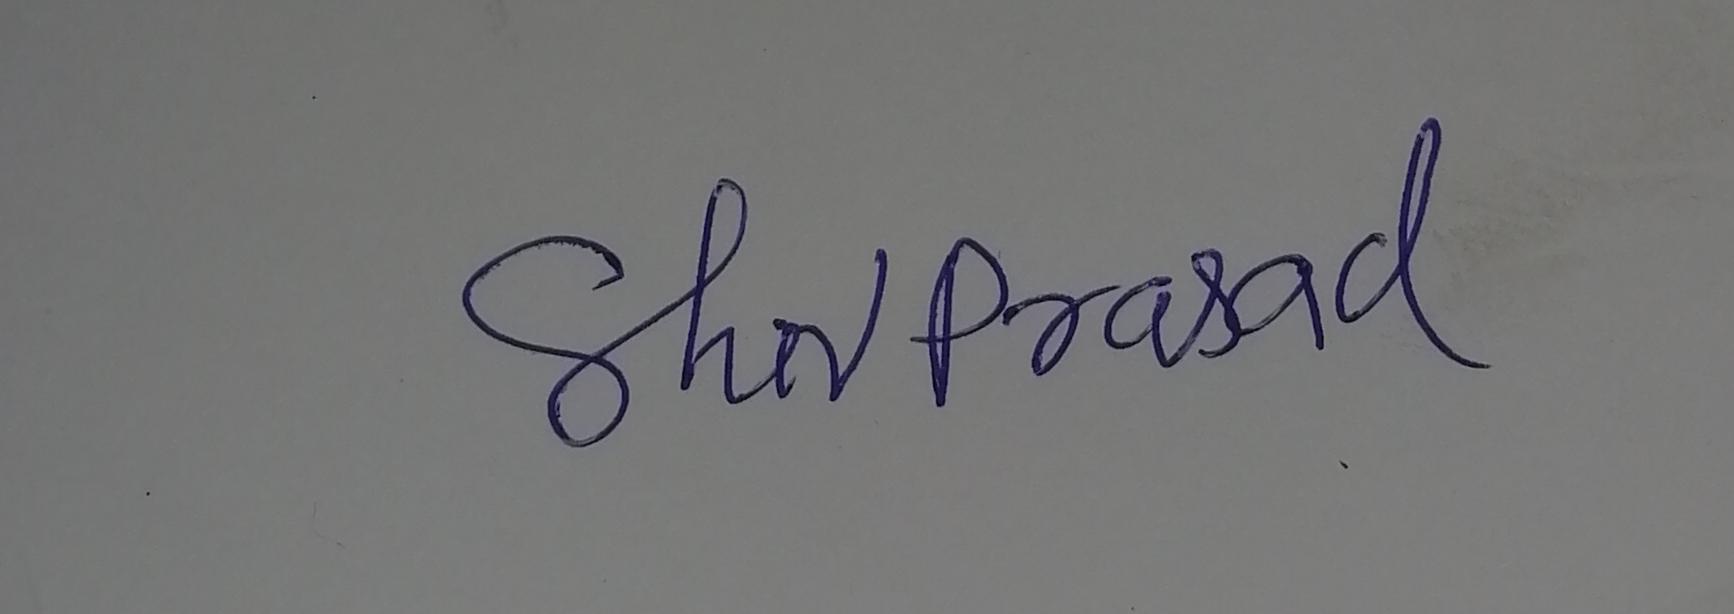 Shiv Prasad